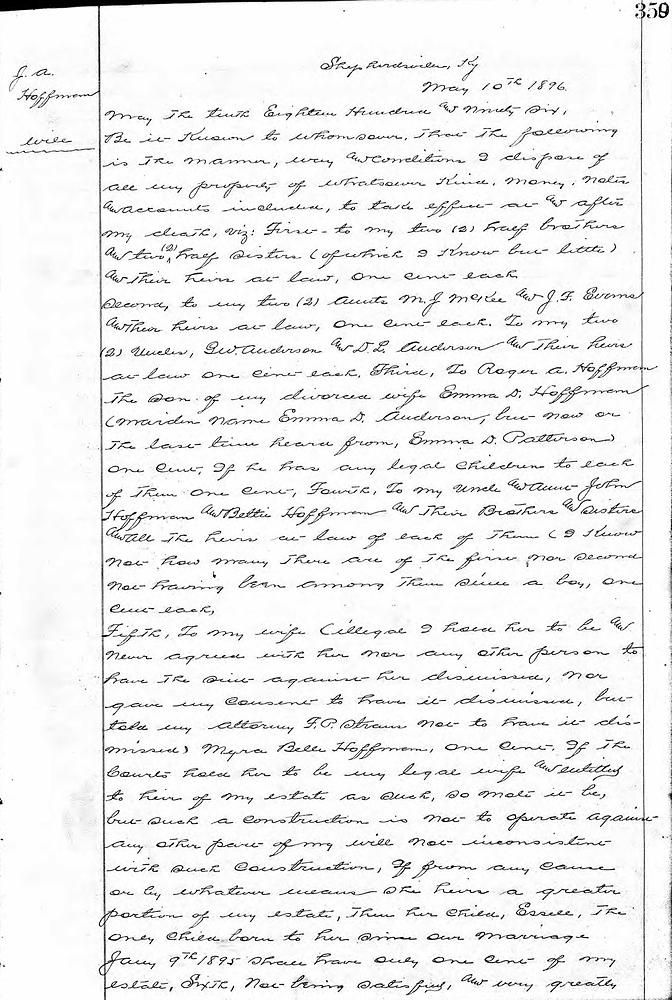 359
J. A.
Hoffman
Will
Shepherdsville, Ky
May 10th 1896.
May the tenth Eighteen Hundred and Ninety Six,
Be it Known to whomsoever, that the following
is the manner, way and conditions I dispose of
all my property of whatsoever Kind, money, notes
and accounts included, to take effect at and after
my death, viz: First- to my two (2) half brothers
and two (2) half sisters (of which I Know but little)
and their heirs at law, one cent each
Second, to my two (2) aunts M. J. McKee and J. F. Evans
and their heirs at law, one cent each. To my two
(2) uncles, G.W. Anderson and D. L. Anderson and their heirs
at law one cent each. Third, To Roger A. Hoffman
the son of my divorced wife Emma D. Hoffman
(maiden name Emma D. Anderson, but now or
the last time heard from, Emma D. Patterson)
one cent, If he has any legal children to each
of them one cent, Fourth, To my uncle and aunt John
Hoffman and Bettie Hoffman and their Brothers and sisters
and all the heirs at law of each of them (I Know
not how many there are of the first nor second
not having been among them since a boy, one
cent each,
Fifth, To my wife (illegal I hold her to be and
never agreed with her nor any other person to
have the suit against her dismissed, nor
gave my consent to have it dismissed, but
told my attorney F. P. Straus not to have it dis-
missed) Myra Belle Hoffman, one cent. If the
Courts hold her to be my legal wife and entitled
to heir of my estate as such, so mote it be,
but such a construction is not to operate against
any other part of my will not inconsistent
with such construction, If from any cause
or by whatever means she heirs a greater
portion of my estate, then her child, Essell, the
only child born to her since our marriage
Jany 9th 1895 shall have only one cent of my
estate, Sixth, Not being satisfied, and very greatly